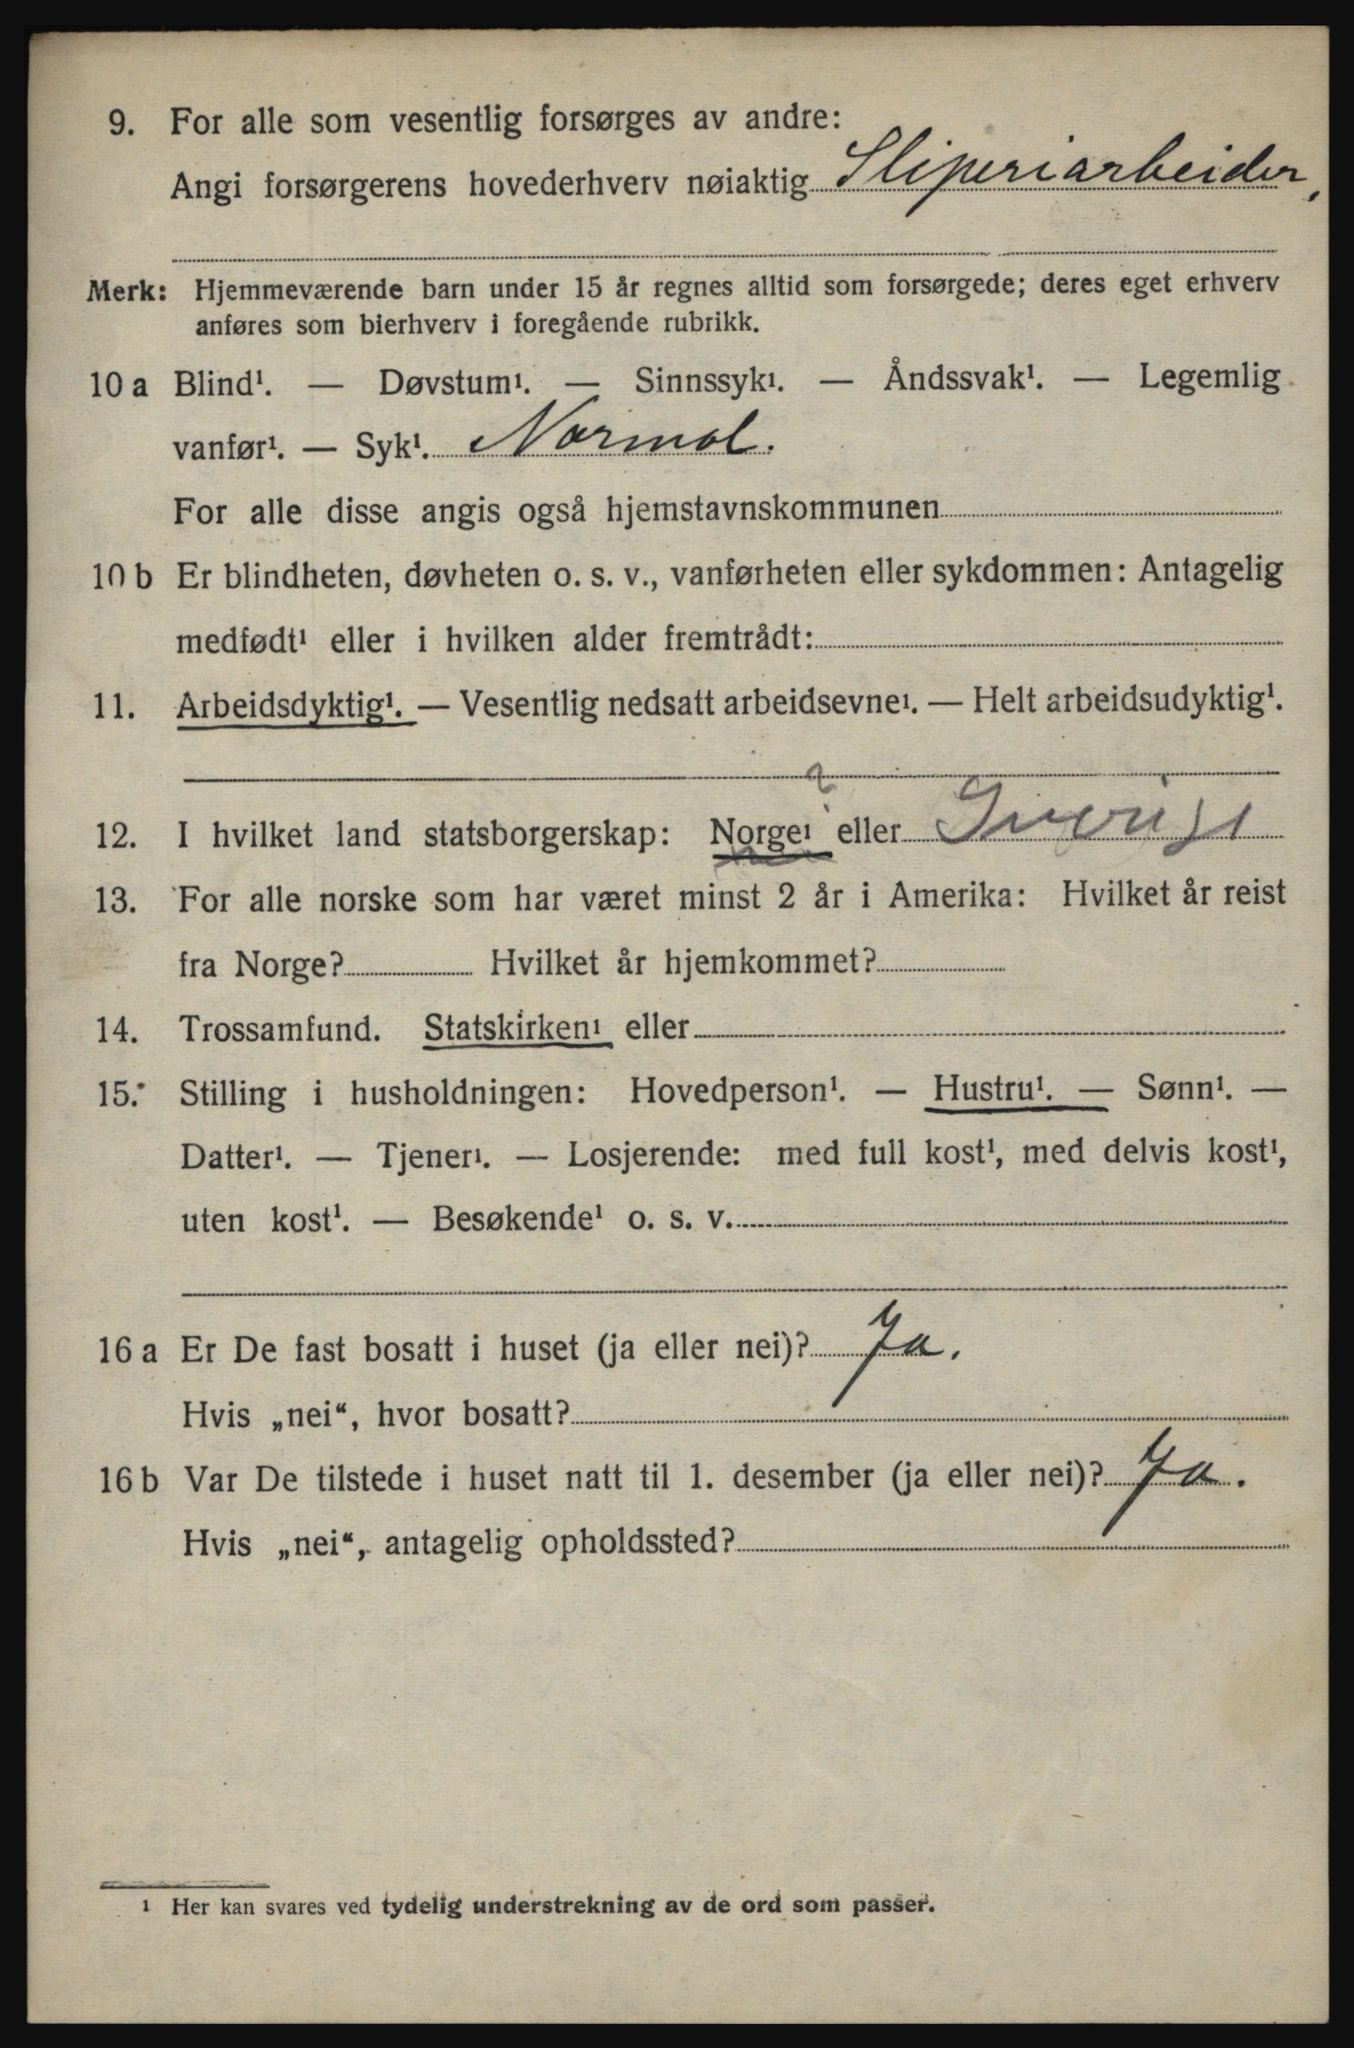 9. For alle som vesentlig forsørges av andre:
Angi forsørgerens hovederhverv nøiaktig Sliperiarbeider,
Merk: Hjemmeværende barn under 15 år regnes alltid som forsørgede; deres eget erhverv
anføres som bierhverv i foregående rubrikk.
10 a Blind¹. — Døvstum¹. — Sinnssyk¹. — Åndssvak¹. — Legemlig
vanfør¹. — Syk¹. Normal.
For alle disse angis også hjemstavnskommunen
10 b Er blindheten, døvheten o. s. v., vanførheten eller sykdommen: Antagelig
medfødt¹ eller i hvilken alder fremtrådt:
11. Arbeidsdyktig¹. — Vesentlig nedsatt arbeidsevne¹. — Helt arbeidsudyktig¹.
?
12. I hvilket land statsborgerskap: Norge¹ eller Sverige
13. For alle norske som har været minst 2 år i Amerika: Hvilket år reist
fra Norge? Hvilket år hjemkommet?
14. Trossamfund. Statskirken¹ eller
15. Stilling i husholdningen: Hovedperson¹. — Hustru¹. — Sønn¹. —
Datter¹. — Tjener¹. — Losjerende: med full kost¹, med delvis kost¹,
uten kost¹. — Besøkende¹ o. s. v.
16 a Er De fast bosatt i huset (ja eller nei)? Ja.
Hvis „nei“, hvor bosatt?
16 b Var De tilstede i huset natt til 1. desember (ja eller nei)? Ja.
Hvis „nei“, antagelig opholdssted?
¹ Her kan svares ved tydelig understrekning av de ord som passer.